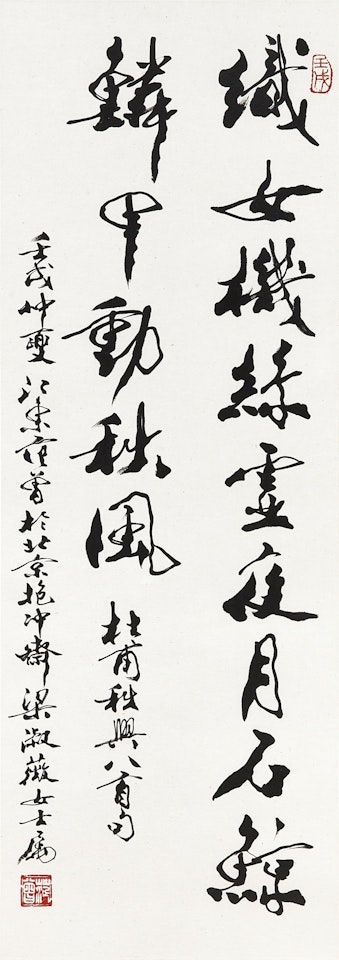 壬戌
織女機絲虛夜月石鯨
鱗甲動秋風
杜甫秋興八首句
壬戌仲夏江東范曾於北京抱冲齋梁淑薇女士属
范曾